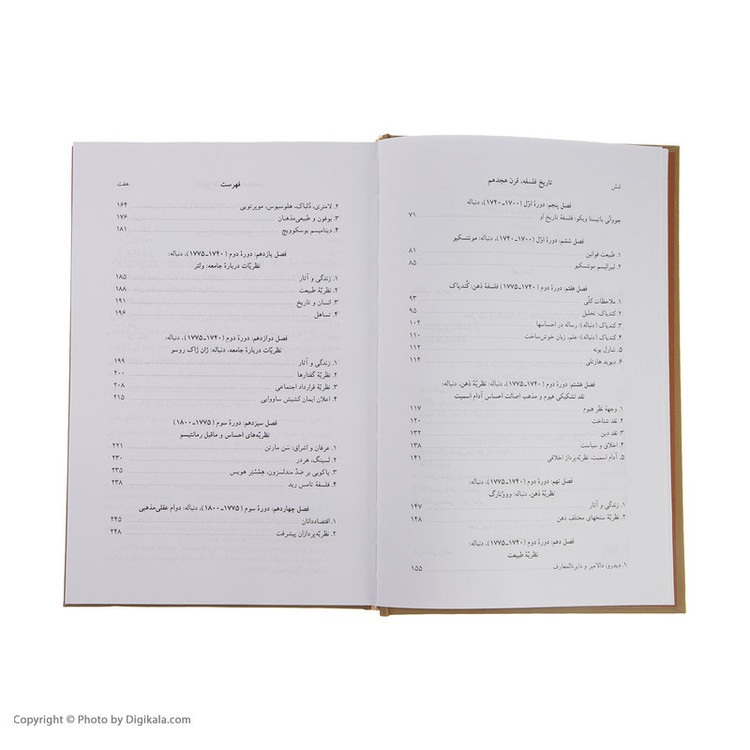 شش
تاریخ فلسفه، قرن هجدهم
فصل پنجم: دورهٔ اوّل (۱۷۰۰-۱۷۴۰)، دنباله
جووانّی باتیستا ویکو: فلسفهٔ تاریخ او ۷۱
فصل ششم: دورهٔ اوّل (۱۷۰۰-۱۷۴۰)، دنباله: مونتسکیو
۱. طبیعت قوانین ۸۱
۲. لیبرالیسم مونتسکیو ۸۵
فصل هفتم: دورهٔ دوم (۱۷۴۰-۱۷۷۵) فلسفهٔ ذهن، کُندیاک
۱. ملاحظات کلّی ۹۳
۲. کندیاک: تحلیل ۹۵
۳. کندیاک (دنباله): رساله در احساسها ۱۰۲
۴. کندیاک (دنباله): علم، زبان خوش‌ساخت ۱۱۰
۵. شارل بونه ۱۱۲
۶. دیوید هارتلی ۱۱۴
فصل هشتم: دورهٔ دوم (۱۷۴۰-۱۷۷۵)، دنباله: نظریّهٔ ذهن، دنباله:
نقد تشکیکی هیوم و مذهب اصالت احساس آدام اسمیت
۱. وجههٔ نظر هیوم ۱۱۷
۲. نقد شناخت ۱۲۰
۳. نقد دین ۱۳۲
۴. اخلاق و سیاست ۱۳۸
۵. آدام اسمیت، نظریّه‌پرداز اخلاقی ۱۴۱
فصل نهم: دورهٔ دوم (۱۷۴۰-۱۷۷۵)، دنباله:
نظریّهٔ ذهن، دنباله: وووِنارگ
۱. زندگی و آثار ۱۴۷
۲. نظریّهٔ سنخهای مختلف ذهن ۱۴۸
فصل دهم: دورهٔ دوم (۱۷۴۰-۱۷۷۵)، دنباله:
نظریّهٔ طبیعت
۱. دیدرو، دالامبر و دایرةالمعارف ۱۵۵
فهرست
هفت
۲. لامتری، دُلباک، هلوسیوس، موپرتویی ۱۶۴
۳. بوفون و طبیعی‌مذهبان ۱۷۶
۴. دینامیسم بوسکوویچ ۱۸۱
فصل یازدهم: دورهٔ دوم (۱۷۴۰-۱۷۷۵)، دنباله:
نظریّات دربارهٔ جامعه: ولتر
۱. زندگی و آثار ۱۸۵
۲. نظریّهٔ طبیعت ۱۸۸
۳. انسان و تاریخ ۱۹۱
۴. تساهل ۱۹۶
فصل دوازدهم: دورهٔ دوم (۱۷۴۰-۱۷۷۵)، دنباله:
نظریّات دربارهٔ جامعه، دنباله: ژان ژاک روسو
۱. زندگی و آثار ۱۹۹
۲. نظریّهٔ گفتارها ۲۰۰
۳. نظریّهٔ قرارداد اجتماعی ۲۰۸
۴. اعلان ایمان کشیش ساووایی ۲۱۵
فصل سیزدهم: دورهٔ سوم (۱۷۷۵-۱۸۰۰)
نظریّه‌های احساس و ماقبل رمانتیسم
۱. عرفان و اشراق، سَن مارتن ۲۲۱
۲. لسینگ، هردر ۲۳۰
۳. یاکوبی بر ضدّ مندلسزون، هِمْستِرْ هویس ۲۳۵
۴. فلسفهٔ تامس رید ۲۳۸
فصل چهاردهم: دورهٔ سوم (۱۷۷۵-۱۸۰۰)، دنباله: دوام عقلی‌مذهبی
۱. اقتصاددانان ۲۴۵
۲. نظریّه‌پردازان پیشرفت ۲۴۸
Copyright © Photo by Digikala.com